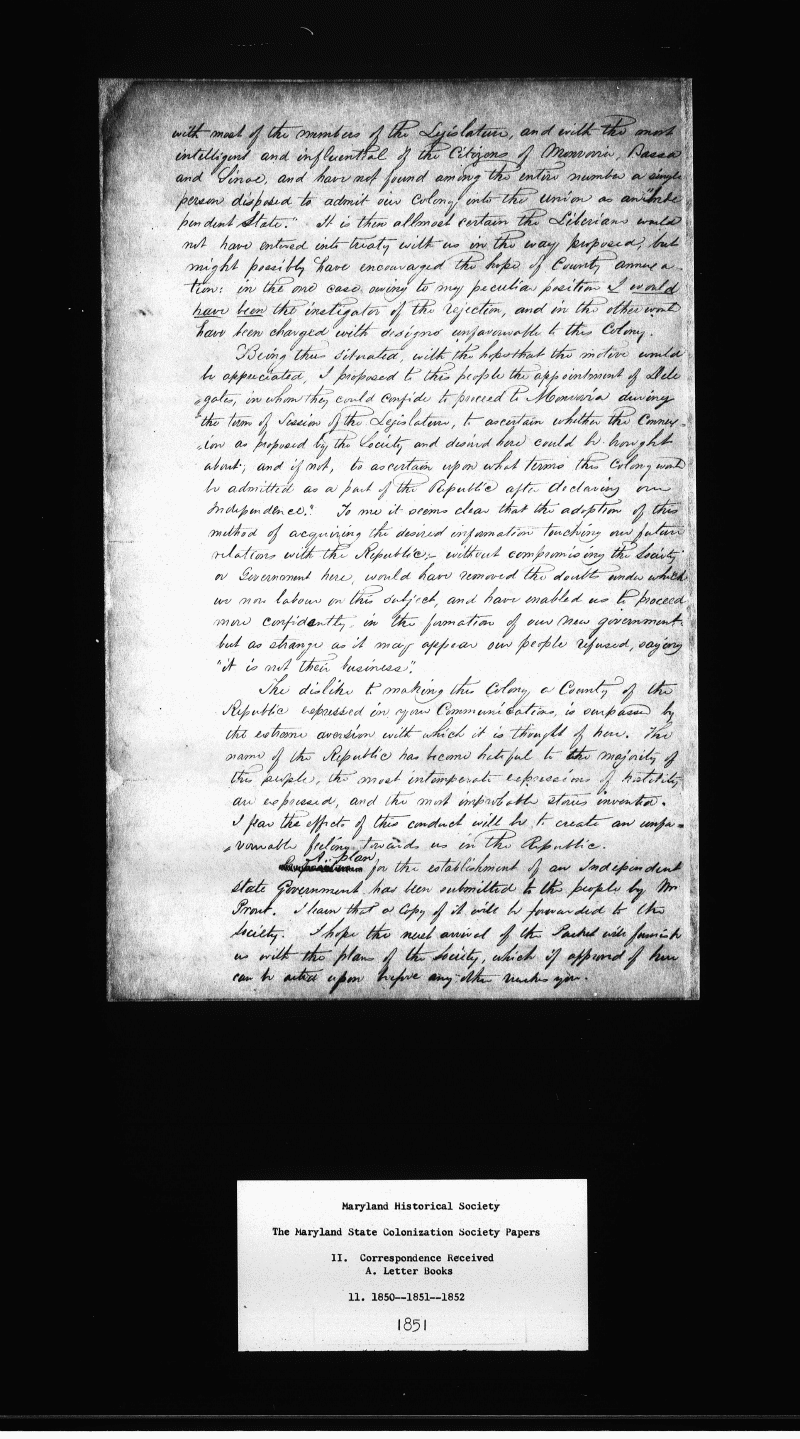 with most of the members of the Legislature, and with the most
intelligent and influential of the Citizens of Monrovia, Bassa
and Sinoe, and have not found among the entire number a single
person disposed to admit our Colony into the union as an "Inde
pendent State." It is then allmost certain the Liberians would
not have entered into treaty with us in the way proposed, but
might possibly have encouraged the hope of County annexa-
tion: in the one case owing to my peculiar position I would
have been the instigator of the rejection, and in the other wont
have been charged with designs unfavourable to this Colony.
Being thus situated, with the hope that the motive would
be appreciated, I proposed to this people the appointment of Dele
gates, in whom they could confide to proceed to Monrovia during
"the term of Session of the Legislature, to ascertain whether the Connex-
ion as proposed by the Society and desired here could be brought
about; and if not, to ascertain upon what terms this Colony wont
be admitted as a part of the Republic after declaring our
Independence." To me it seems clear that the adoption of this
method of acquiring the desired information touching our future
relations with the Republic, without compromising the Society
or Government here, would have removed the doubts under which
we now labour on this subject, and have enabled us to proceed
more confidently, in the formation of our new government:
but as strange as it may appear our people refused, saying
"it is not their business".
The dislike to making this Colony a County of the
Republic expressed in your Communications, is surpassed by
the extreme aversion with which it is thought of here. The
name of the Republic has become hateful to the majority of
this people, the most intemperate expressions of hostility
are expressed, and the most improbable stories invented.
I fear the effects of this conduct will be to create an unfa-
vourable feeling towards us in the Republic.
A plan
for the establishment of an Independent
state Government has been submitted to the people by Mr
Prout. I learn that a Copy of it will be forwarded to the
Society. I hope the next arrival of the Packet will furnish
us with the plans of the Society, which if approved of here
can be acted upon before any other reaches you.
Maryland Historical Society
The Maryland State Colonization Society Papers
II. Correspondence Received
A. Letter Books
11. 1850--1851--1852
1851